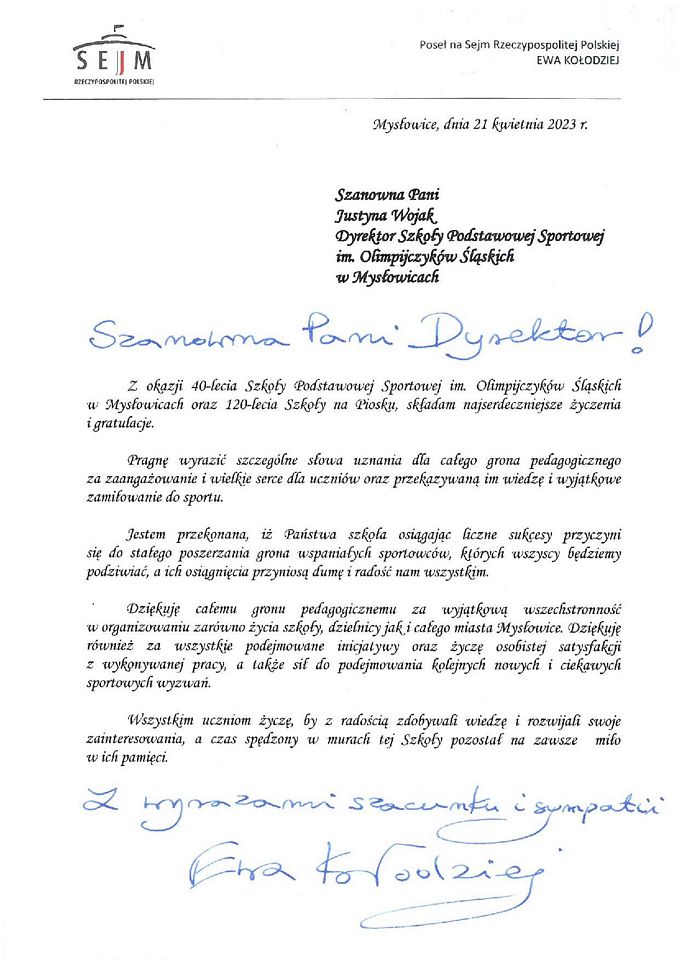 SEJM
RZECZYPOSPOLITEJ POLSKIEJ
Poseł na Sejm Rzeczypospolitej Polskiej
EWA KOŁODZIEJ
Mysłowice, dnia 21 kwietnia 2023 r.
Szanowna Pani
Justyna Wojak
Dyrektor Szkoły Podstawowej Sportowej
im. Olimpijczyków Śląskich
w Mysłowicach
Szanowna Pani Dyrektor!
Z okazji 40-lecia Szkoły Podstawowej Sportowej im. Olimpijczyków Śląskich
w Mysłowicach oraz 120-lecia Szkoły na Piosku, składam najserdeczniejsze życzenia
i gratulacje.
Pragnę wyrazić szczególne słowa uznania dla całego grona pedagogicznego
za zaangażowanie i wielkie serce dla uczniów oraz przekazywaną im wiedzę i wyjątkowe
zamiłowanie do sportu.
Jestem przekonana, iż Państwa szkoła osiągając liczne sukcesy przyczyni
się do stałego poszerzania grona wspaniałych sportowców, których wszyscy będziemy
podziwiać, a ich osiągnięcia przyniosą dumę i radość nam wszystkim.
Dziękuję całemu gronu pedagogicznemu za wyjątkową wszechstronność
w organizowaniu zarówno życia szkoły, dzielnicy jak i całego miasta Mysłowice. Dziękuję
również za wszystkie podejmowane inicjatywy oraz życzę osobistej satysfakcji
z wykonywanej pracy, a także sił do podejmowania kolejnych nowych i ciekawych
sportowych wyzwań.
Wszystkim uczniom życzę, by z radością zdobywali wiedzę i rozwijali swoje
zainteresowania, a czas spędzony w murach tej Szkoły pozostał na zawsze miło
w ich pamięci.
Z wyrazami szacunku i sympatii
Ewa Kołodziej